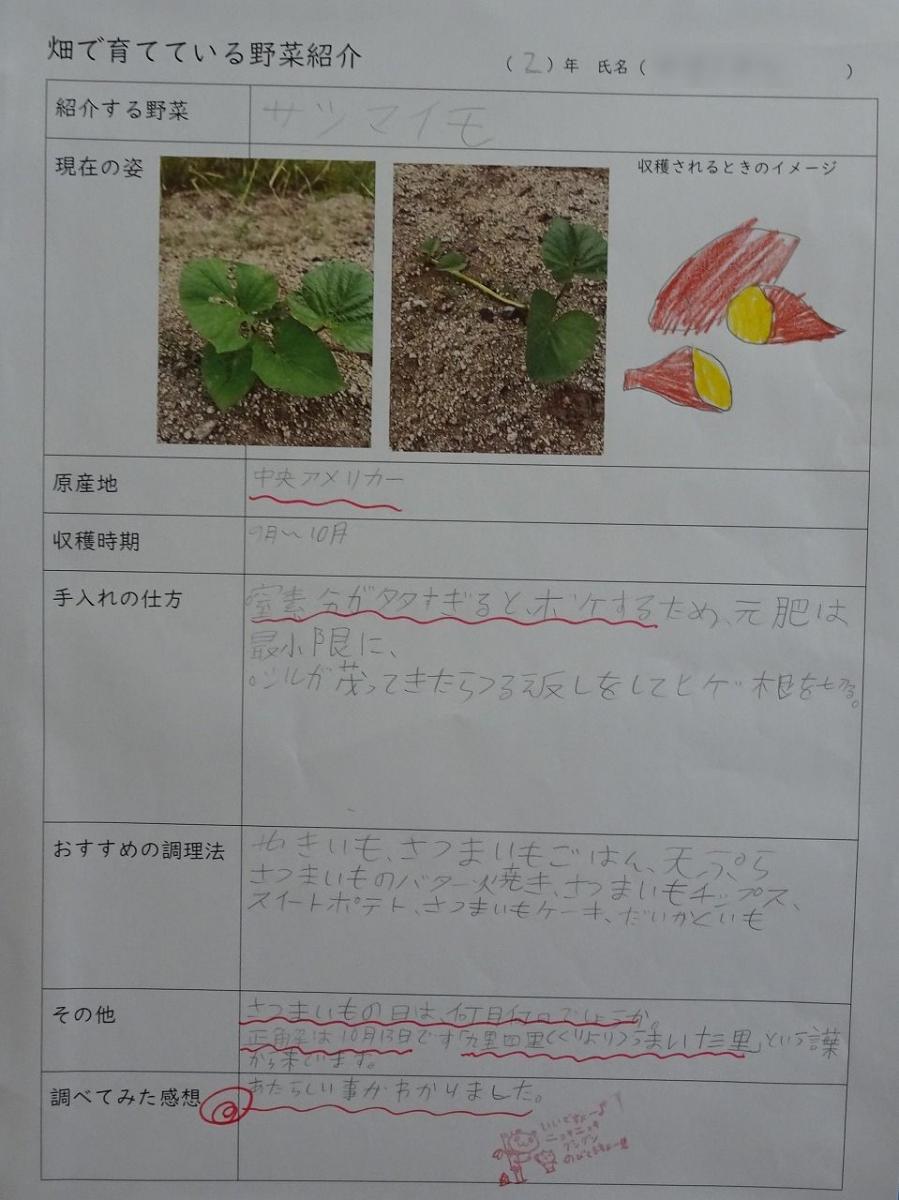 畑で育てている野菜紹介
(2)年 氏名( )
紹介する野菜 サツマイモ
現在の姿
収穫されるときのイメージ
原産地 中央アメリカー
収穫時期 9月〜10月
手入れの仕方
窒素分がタタすぎると、ボケするため、元肥は
最小限に、
。ツルが茂ってきたらつる返しをしてヒゲ根を切る。
おすすめの調理法
やきいも、さつまいもごはん、天ぷら
さつまいものバター焼き、さつまいもチップス、
スイートポテト、さつまいもケーキ、だいがくいも
その他
さつまいもの日は、何月何日でしょうか。
正解は10月13日です「九里四里(くりより)うまい十三里」という言葉
から来ています。
調べてみた感想
あたらしい事がわかりました。
いいですねー♪
ニョキニョキ
グングン